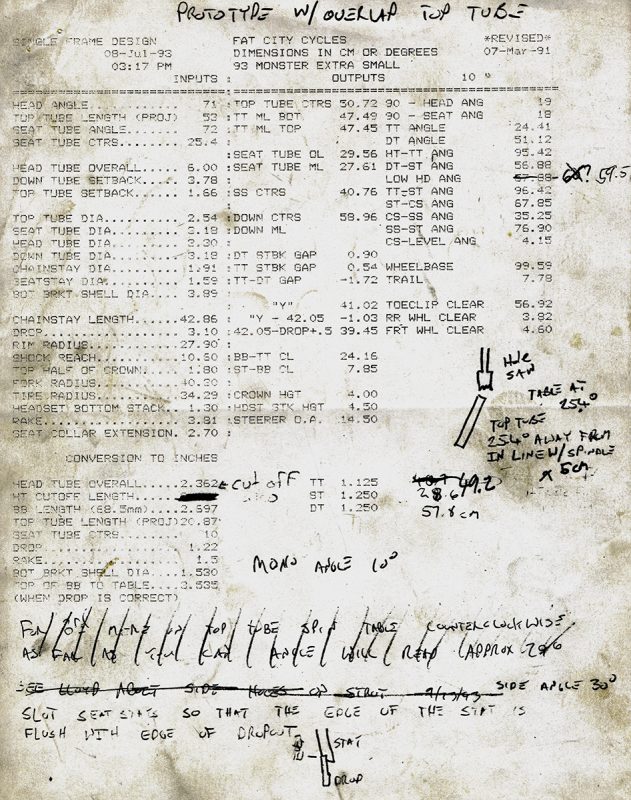 PROTOTYPE W/ OVERLAP TOP TUBE
SINGLE FRAME DESIGN FAT CITY CYCLES *REVISED*
08-Jul-93 DIMENSIONS IN CM OR DEGREES 07-Mar-91
03:17 PM 93 MONSTER EXTRA SMALL
INPUTS : OUTPUTS 10 "
HEAD ANGLE............... 71 :TOP TUBE CTRS 50.72 90 - HEAD ANG 19
TOP TUBE LENGTH (PROJ) 53 :TT ML BOT 47.49 90 - SEAT ANG 18
SEAT TUBE ANGLE......... 72 :TT ML TOP 47.45 TT ANGLE 24.41
SEAT TUBE CTRS..... 25.4 : DT ANGLE 51.12
:SEAT TUBE OL 29.56 HT-TT ANG 95.42
HEAD TUBE OVERALL.. 6.00 :SEAT TUBE ML 27.61 DT-ST ANG 56.88
DOWN TUBE SETBACK.. 3.78 : LOW HD ANG 57.88 59.5
TOP TUBE SETBACK... 1.66 :SS CTRS 40.76 TT-ST ANG 96.42
: ST-CS ANG 67.85
TOP TUBE DIA....... 2.54 :DOWN CTRS 58.96 CS-SS ANG 35.25
SEAT TUBE DIA...... 3.18 :DOWN ML SS-ST ANG 76.90
HEAD TUBE DIA...... 3.30 : CS-LEVEL ANG 4.15
DOWN TUBE DIA...... 3.18 :DT STBK GAP 0.90
CHAINSTAY DIA...... 1.91 :TT STBK GAP 0.54 WHEELBASE 99.59
SEATSTAY DIA....... 1.59 :TT-DT GAP -1.72 TRAIL 7.78
BOT BRKT SHELL DIA.. 3.89 :
: "Y" 41.02 TOECLIP CLEAR 56.92
CHAINSTAY LENGTH... 42.86 : "Y - 42.05 -1.03 RR WHL CLEAR 3.82
DROP............... 3.10 :42.05-DROP+.5 39.45 FRT WHL CLEAR 4.60
RIM RADIUS......... 27.90 :
SHOCK REACH........ 10.60 :BB-TT CL 24.16
TOP HALF OF CROWN.. 1.80 :ST-BB CL 7.85
FORK RADIUS........ 40.30 :
TIRE RADIUS........ 34.29 :CROWN HGT 4.00
HEADSET BOTTOM STACK.. 1.30 :HDST STK HGT 4.50
RAKE............... 3.81 :STEERER O.A. 14.50
SEAT COLLAR EXTENSION. 2.70 :
HOLE
SAW
TABLE AT
25.4°
TOP TUBE
25.4° AWAY FROM
IN LINE W/ SPINDLE
x 5cm
CONVERSION TO INCHES
HEAD TUBE OVERALL..2.362 ← CUT OFF TT 1.125 49.2
HT CUTOFF LENGTH... ST 1.250 28.6
BB LENGTH (68.5mm)..2.697 DT 1.250 57.8 cm
TOP TUBE LENGTH (PROJ) 20.87
SEAT TUBE CTRS..... 10
DROP............... 1.22
RAKE............... 1.5
BOT BRKT SHELL DIA...1.530
TOP OF BB TO TABLE...3.535
(WHEN DROP IS CORRECT)
MONO ANGLE 10°
FOR MITRE ON TOP TUBE SPIN TABLE COUNTERCLOCKWISE
AS FAR AS YOU CAN ANGLE WILL READ (APPROX
SEE LLOYD ABOUT SIDE HOLES OF STRUT 9/13/93 SIDE ANGLE 30°
SLOT SEAT STATS SO THAT THE EDGE OF THE STAT IS
FLUSH WITH EDGE OF DROPOUT
STAT
DROP